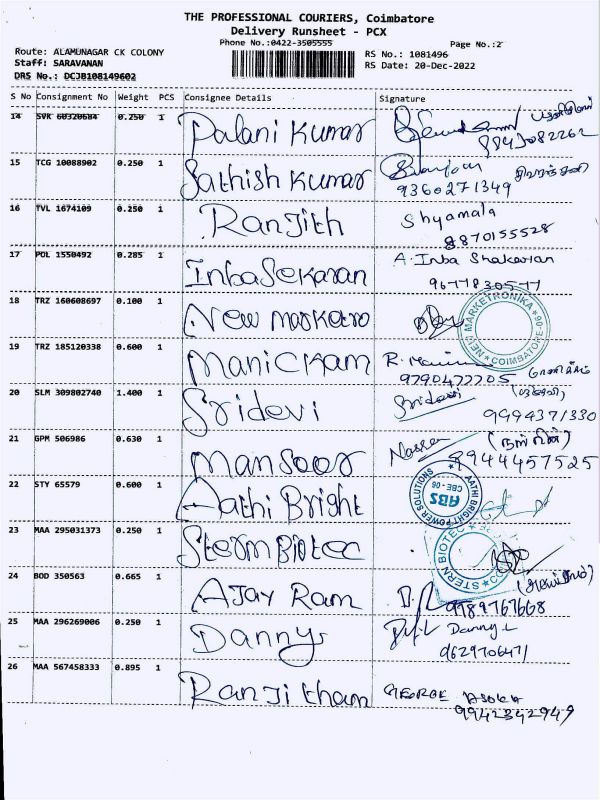 THE PROFESSIONAL COURIERS, Coimbatore
Delivery Runsheet - PCX
Phone No.:0422-3505555
Page No.:2
Route: ALAMUNAGAR CK COLONY
RS No.: 1081496
Staff: SARAVANAN
RS Date: 20-Dec-2022
DRS No.: DCJB108149602
S No Consignment No Weight PCS Consignee Details Signature
14 SVK 60320684 0.250 1 Palani Kumar
8843082262
15 TCG 10088902 0.250 1 Sathish Kumar
9360271349
16 TVL 1674109 0.250 1 Ranjith Shyamala
8870155528
17 POL 1550492 0.285 1 Inbasekaran A. Inba Shakaran
18 TRZ 160608697 0.100 1 New markero NEW MARKETRONIKA COIMBATORE
19 TRZ 185120338 0.600 1 Manickam
9790477705
20 SLM 309802740 1.400 1 Sridevi Sridevi
9994371330
21 GPM 506986 0.630 1 Mansoor
8944457525
22 STY 65579 0.600 1 Aathi Bright AATHI BRIGHT POWER SOLUTIONS ABS CBE-06
23 MAA 295031373 0.250 1 Stern Biotec STERN BIOTEC
24 BOD 350563 0.665 1 Ajay Ram
9789767668
25 MAA 296269006 0.250 1 Danny Danny L
9629706471
26 MAA 567458333 0.895 1 Ranjitham GEORGE ASOKA
9942342949